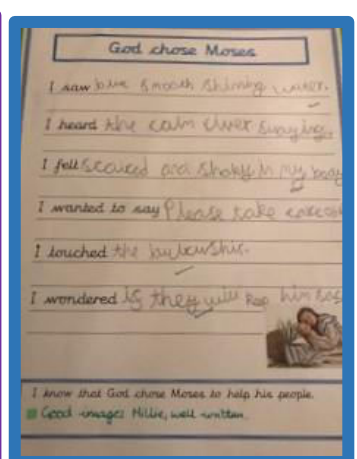 God chose Moses
I saw blue smooth shining water.
I heard the calm river swaying.
I felt scaired and shaky in my body
I wanted to say Please take care
I touched the
I wondered they will keep him
I know that God chose Moses to help his people.
Good images Millie, well written.